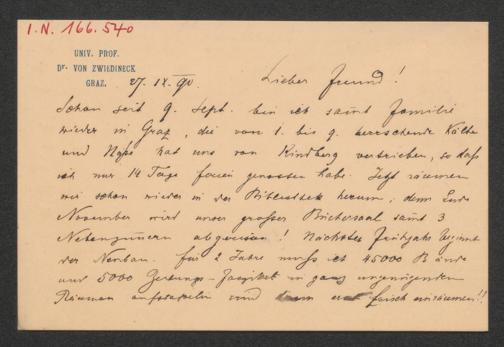 I.N. 166.540
UNIV. PROF.
Dr. VON ZWIEDINECK
GRAZ.
27. IX. 90
Lieber Freund!
Schon seit 9. Sept. bin ich samt Familie
wieder in Graz, die vom 1. bis 9. herrschende Kälte
und Nässe hat uns von Kindberg vertrieben, so daß
ich nur 14 Tage Ferien genossen habe. Jetzt räumen
wir schon wieder in der Bibliothek herum, denn Ende
November wird unser grosser Büchersaal samt 3
Nebenzimmern abgerissen! Nächstes Frühjahr beginnt
der Neubau. Für 2 Jahre muß ich 45000 Bände
und 5000 Zeitungs- in ganz ungenügenden
Räumen und frisch einräumen!!